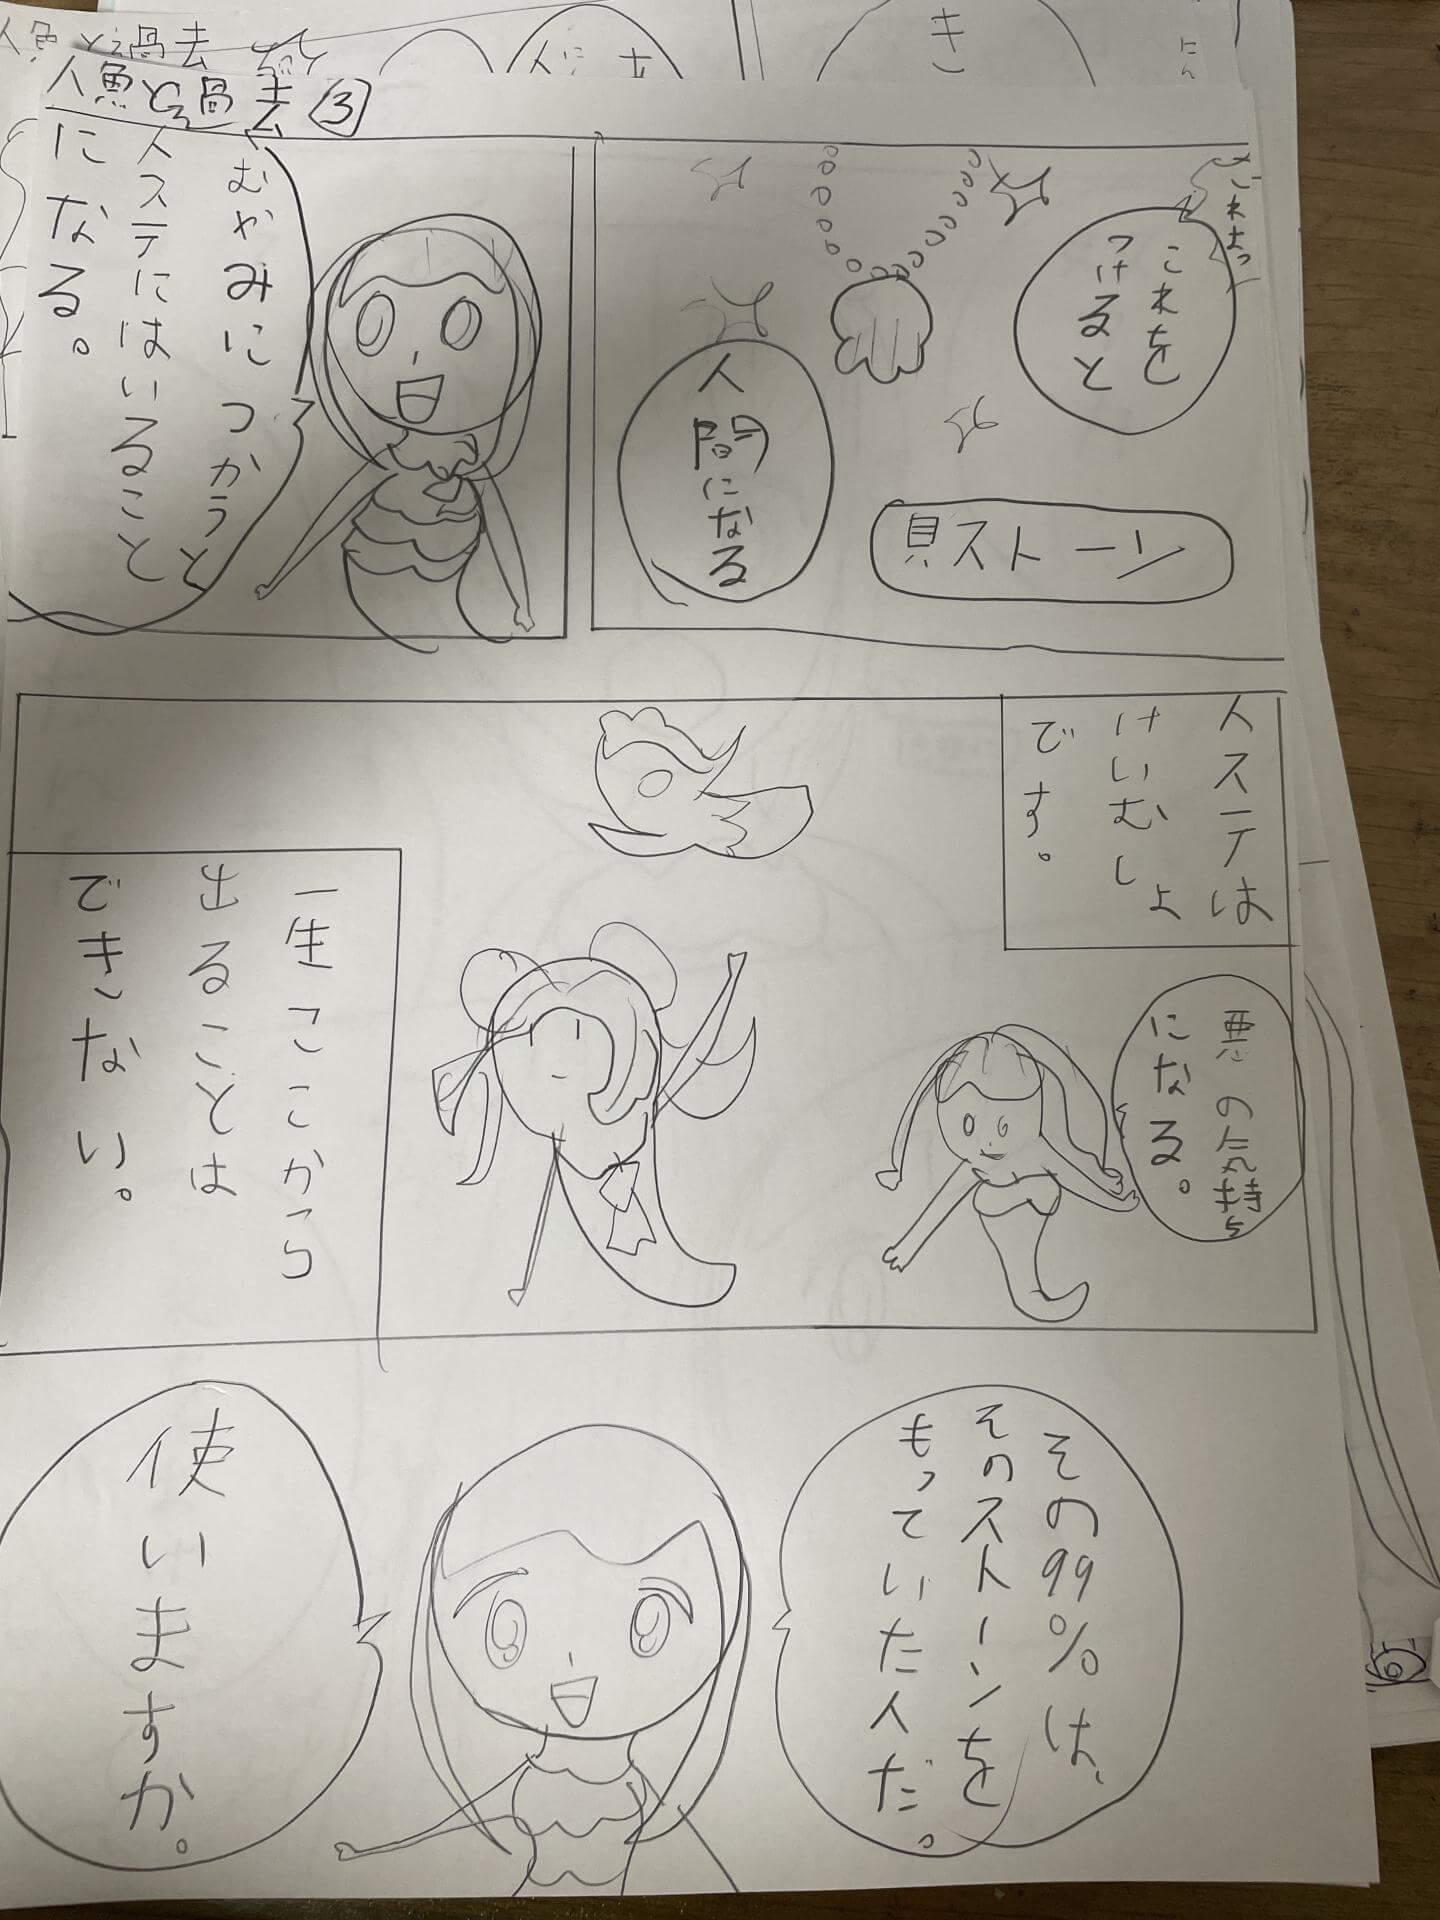 人魚と過去
人魚と過去③
これを
つけると
人間になる
貝ストーン
むやみにつかうと
人ステにはいること
になる。
人ステは
けいむしょ
です。
悪の気持ち
になる。
一生ここから
出ることは
できない。
その99%は、
そのストーンを
もっていた人だ。
使いますか。